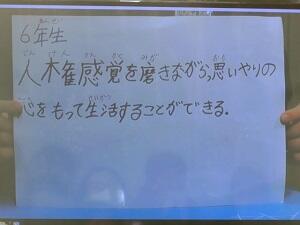 6年生
人権感覚を磨きながら,思いやりの
心をもって生活することができる.